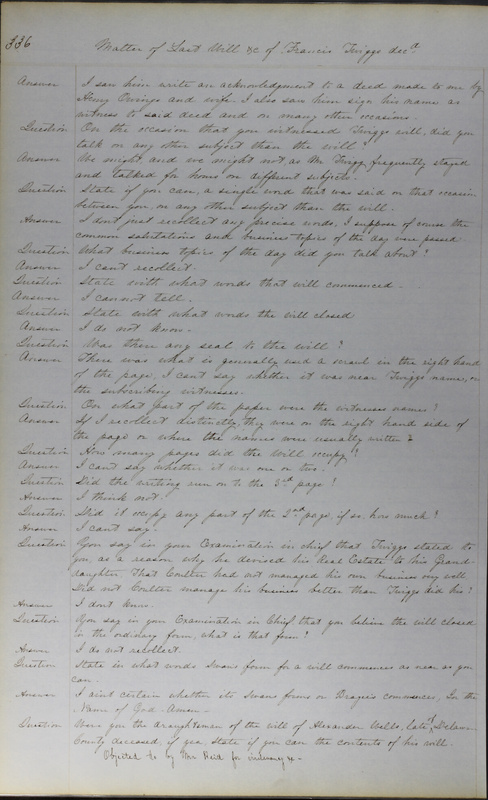 336
Matter of Last Will &c of Francis Twiggs decd
Answer I saw him write an acknowledgement to a deed made to me by
Henry Owings and wife. I also saw him sign his name as
witness to said deed and on many other occasions.
Question On the occasion that you witnessed Twiggs will, did you
talk on any other subject than the will
Answer We might, and we might not as Mr Twiggs frequently stayed
and talked for hours on different subjects.
Question State if you can, a single word that was said on that occasion
between you, on any other subject than the will.
Answer I dont just recollect any precise words, I suppose of course the
common salutations and business topics of the day were passed
Question What business topics of the day did you talk about?
Answer I can't recollect.
Question State with what words that will commenced.
Answer I cannot tell.
Question State with what words the will closed
Answer I do not know.
Question Was there any seal to the will?
Answer There was what is generally used a scrawl in the right hand
of the page, I can't say whether it was near Twiggs name, or
the subscribing witnesses.
Question On what part of the paper were the witnesses names?
Answer If I recollect distinctly, they were on the right hand side of
the page or where the names were usually written
Question How many pages did the Will occupy?
Answer I can't say whether it was one or two.
Question Did the writing run on to the 3rd page?
Answer I think not.
Question Did it occupy any part of the 2nd page, if so, how much?
Answer I can't say.
Question You say in your Examination in chief that Twiggs stated to
you, as a reason why he devised his Real Estate to his Grand-
daughter, That Coulter had not managed his own business very well
Did not Coulter manage his business better than Twiggs did his?
Answer I dont know.
Question You say in your Examination in Chief that you believe the will closed
in the ordinary form, what is that form?
Answer I do not recollect.
Question State in what words Swans form for a will commences as near as you
can.
Answer I aint certain whether its Swans forms or commences, In the
Name of God. Amen
Question Were you the draughtsman of the will of Alexander Wells, late of Delaware
County deceased, if yea, state if you can the contents of his will.
Objected to by Mr Reid for